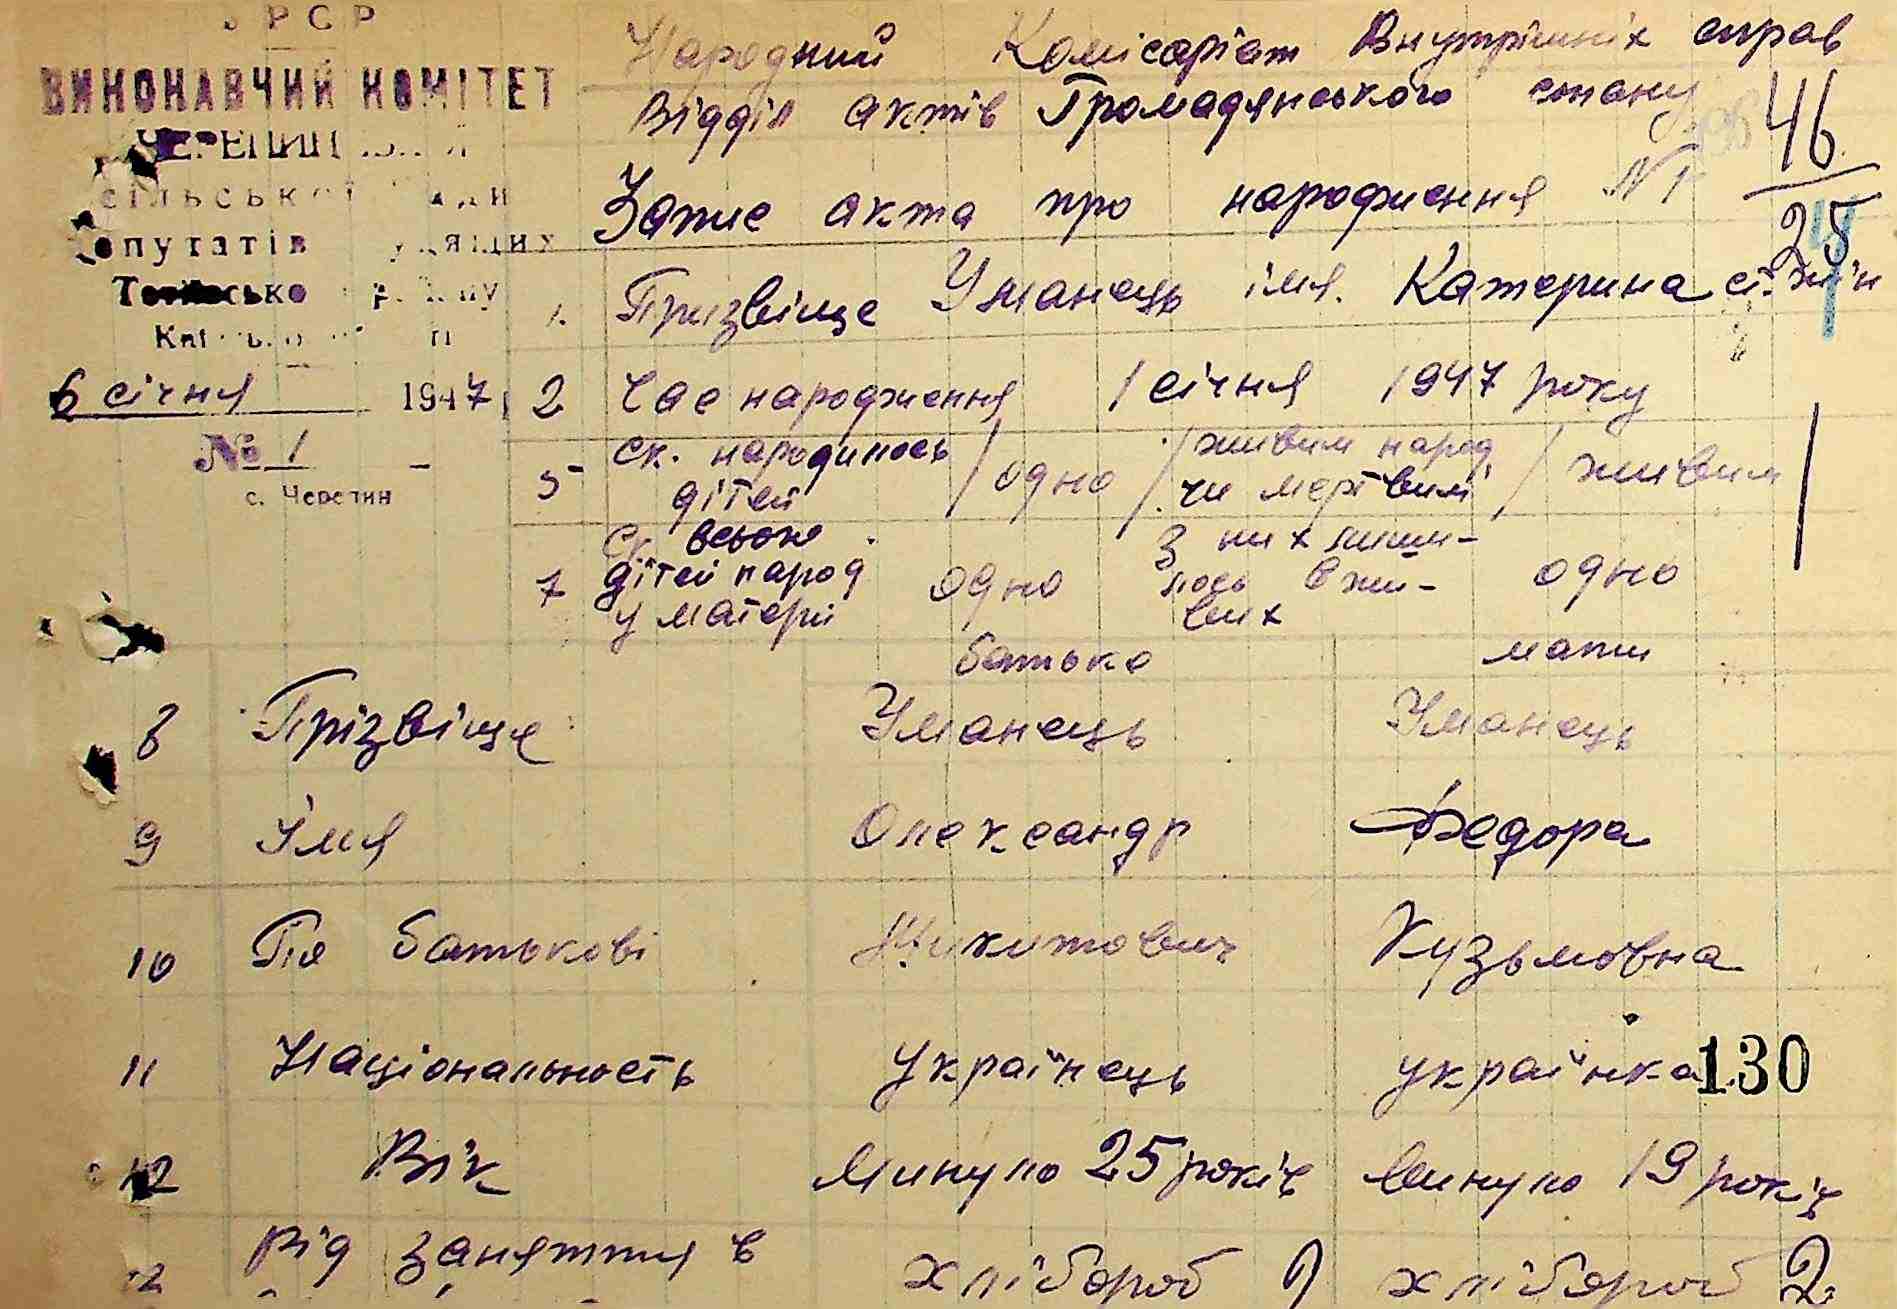 УРСР
ВИКОНАВЧИЙ КОМІТЕТ
сільської
депутатів трудящих
6 січня 1947
№ 1
с. Черепин
Народний Комісаріат Внутрішніх справ
Відділ актів Громадянського стану
46
Запис акта про народження № 1
25
1. Призвіще Уманець імя. Катерина ст. жін
2 Час народження 1 січня 1947 року
5 ск. народилось дітей / одно / живим народ чи мертвим / живим
7 Ск. всього дітей народ у матери одно З них лиши- лось в жи- вих одно
батько мати
8 Прізвіще Уманець Уманець
9 Імя Олександр Федора
10 По батькові Микитович Кузьмовна
11 Національность українець українка 130
12 Вік минуло 25 років минуло 19 років
Рід заняття в хлібороб хлібороб 2